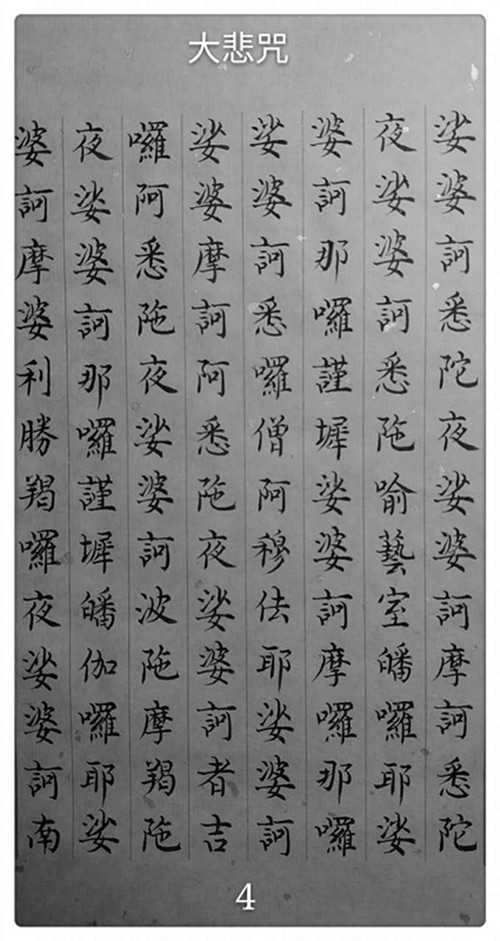 大悲咒
娑婆訶悉陀夜娑婆訶摩訶悉陀
夜娑婆訶悉陁喻藝室皤囉耶娑
婆訶那囉謹墀娑婆訶摩囉那囉
娑婆訶悉囉僧阿穆佉耶娑婆訶
娑婆摩訶阿悉陁夜娑婆訶者吉
囉阿悉陁夜娑婆訶波陁摩羯陁
夜娑婆訶那囉謹墀皤伽囉耶娑
婆訶摩婆利勝羯囉夜娑婆訶南
4